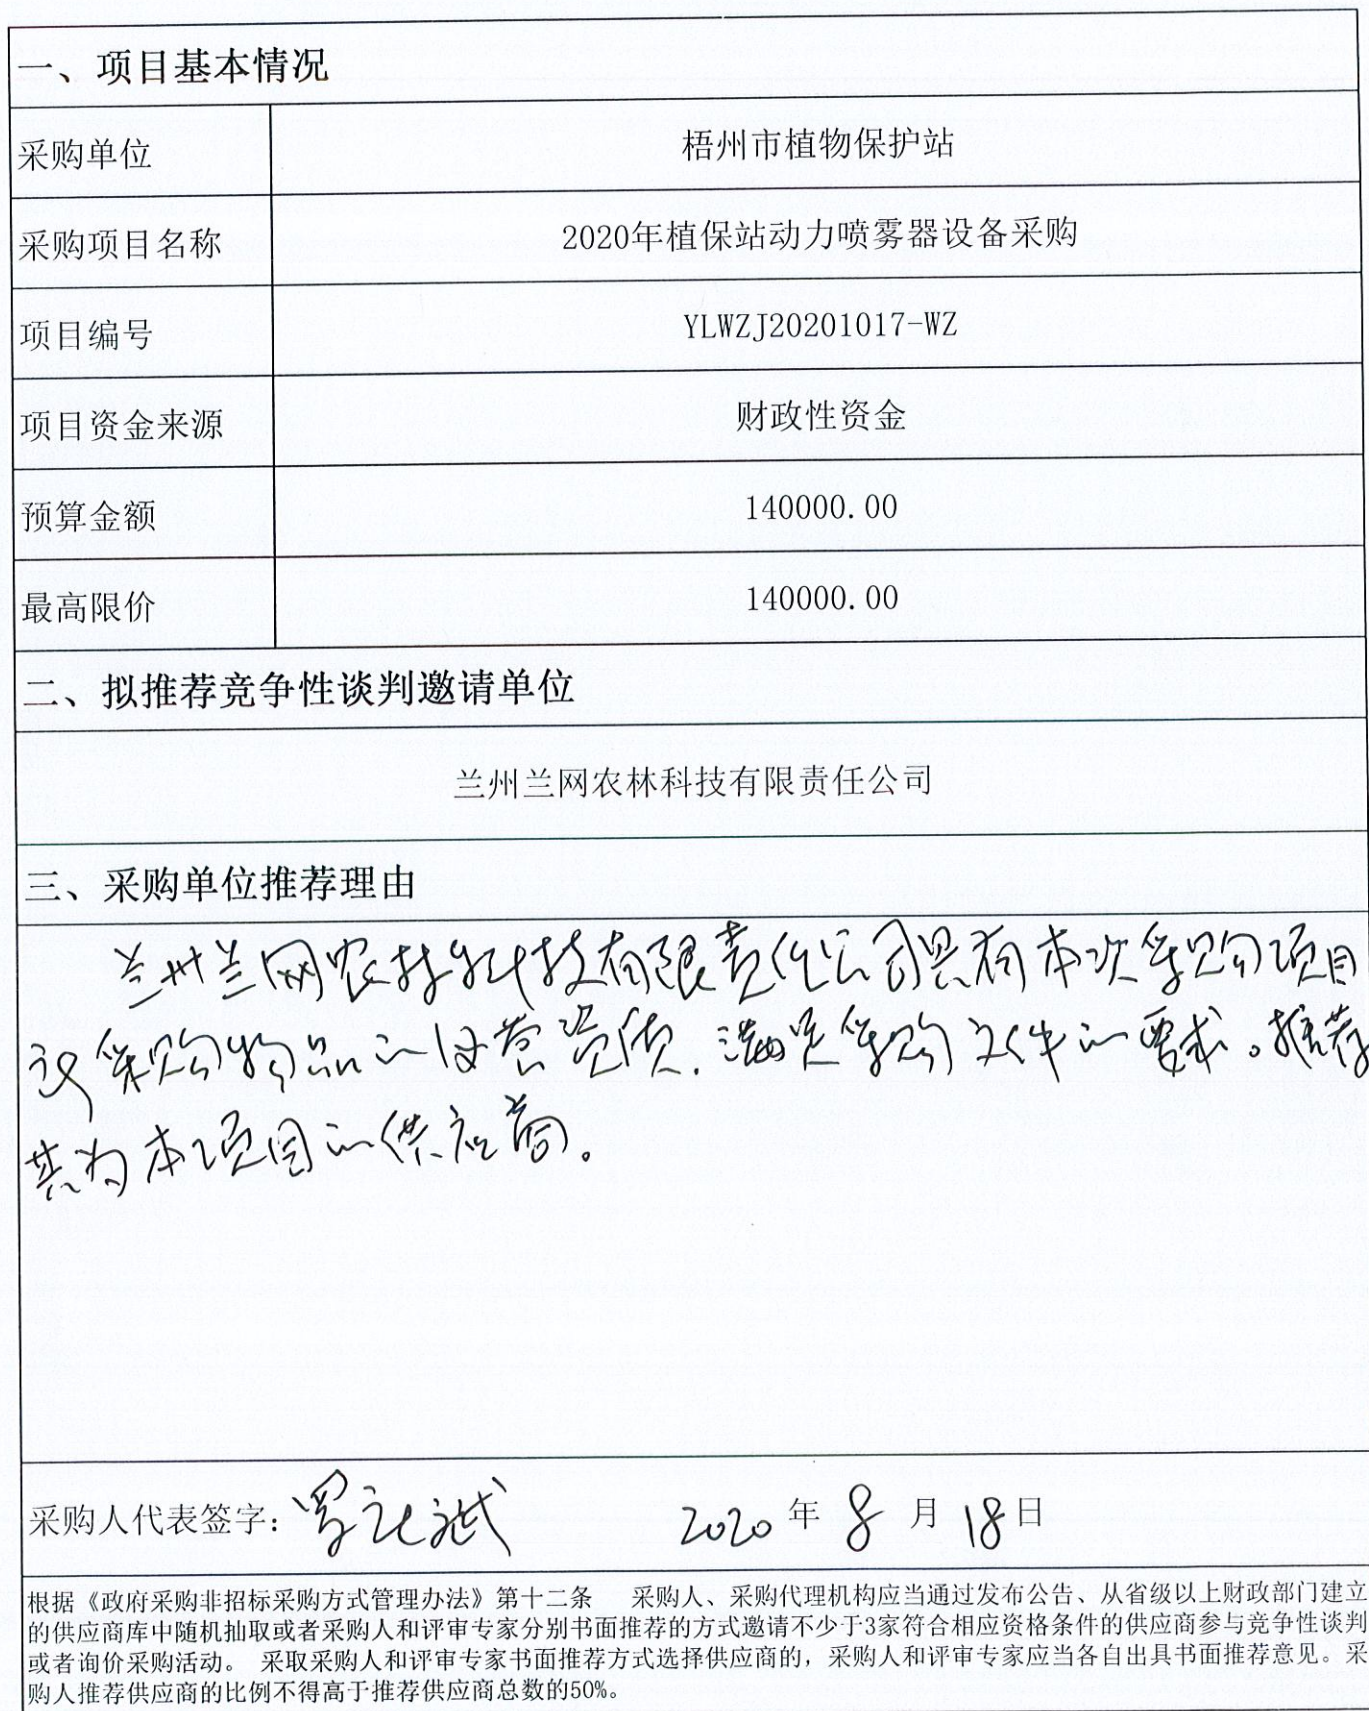 一、项目基本情况
采购单位 梧州市植物保护站
采购项目名称 2020年植保站动力喷雾器设备采购
项目编号 YLWZJ20201017-WZ
项目资金来源 财政性资金
预算金额 140000.00
最高限价 140000.00
二、拟推荐竞争性谈判邀请单位
兰州兰网农林科技有限责任公司
三、采购单位推荐理由
兰州兰网农林科技有限责任公司具有本次采购项目
采购物品的经营资质,满足采购文件的要求。推荐
其为本项目的供应商。
采购人代表签字: 2020 年 8 月 18 日
根据《政府采购非招标采购方式管理办法》第十二条 采购人、采购代理机构应当通过发布公告、从省级以上财政部门建立
的供应商库中随机抽取或者采购人和评审专家分别书面推荐的方式邀请不少于3家符合相应资格条件的供应商参与竞争性谈判
或者询价采购活动。 采取采购人和评审专家书面推荐方式选择供应商的，采购人和评审专家应当各自出具书面推荐意见。采
购人推荐供应商的比例不得高于推荐供应商总数的50%。